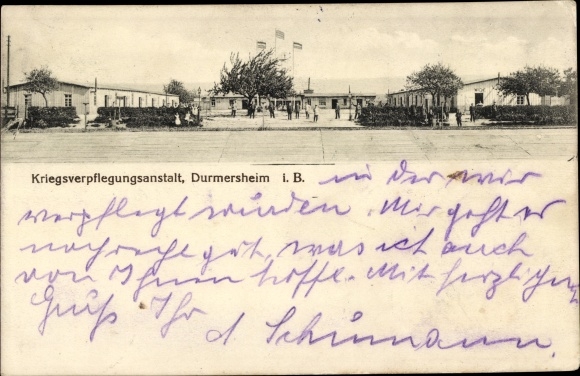 Kriegsverpflegungsanstalt, Durmersheim i. B. in der wir
verpflegt wurden. Mir geht es
noch recht gut, was ich auch
von Ihnen hoffe. Mit herzlichem
Gruß Ihr
A Schumann.